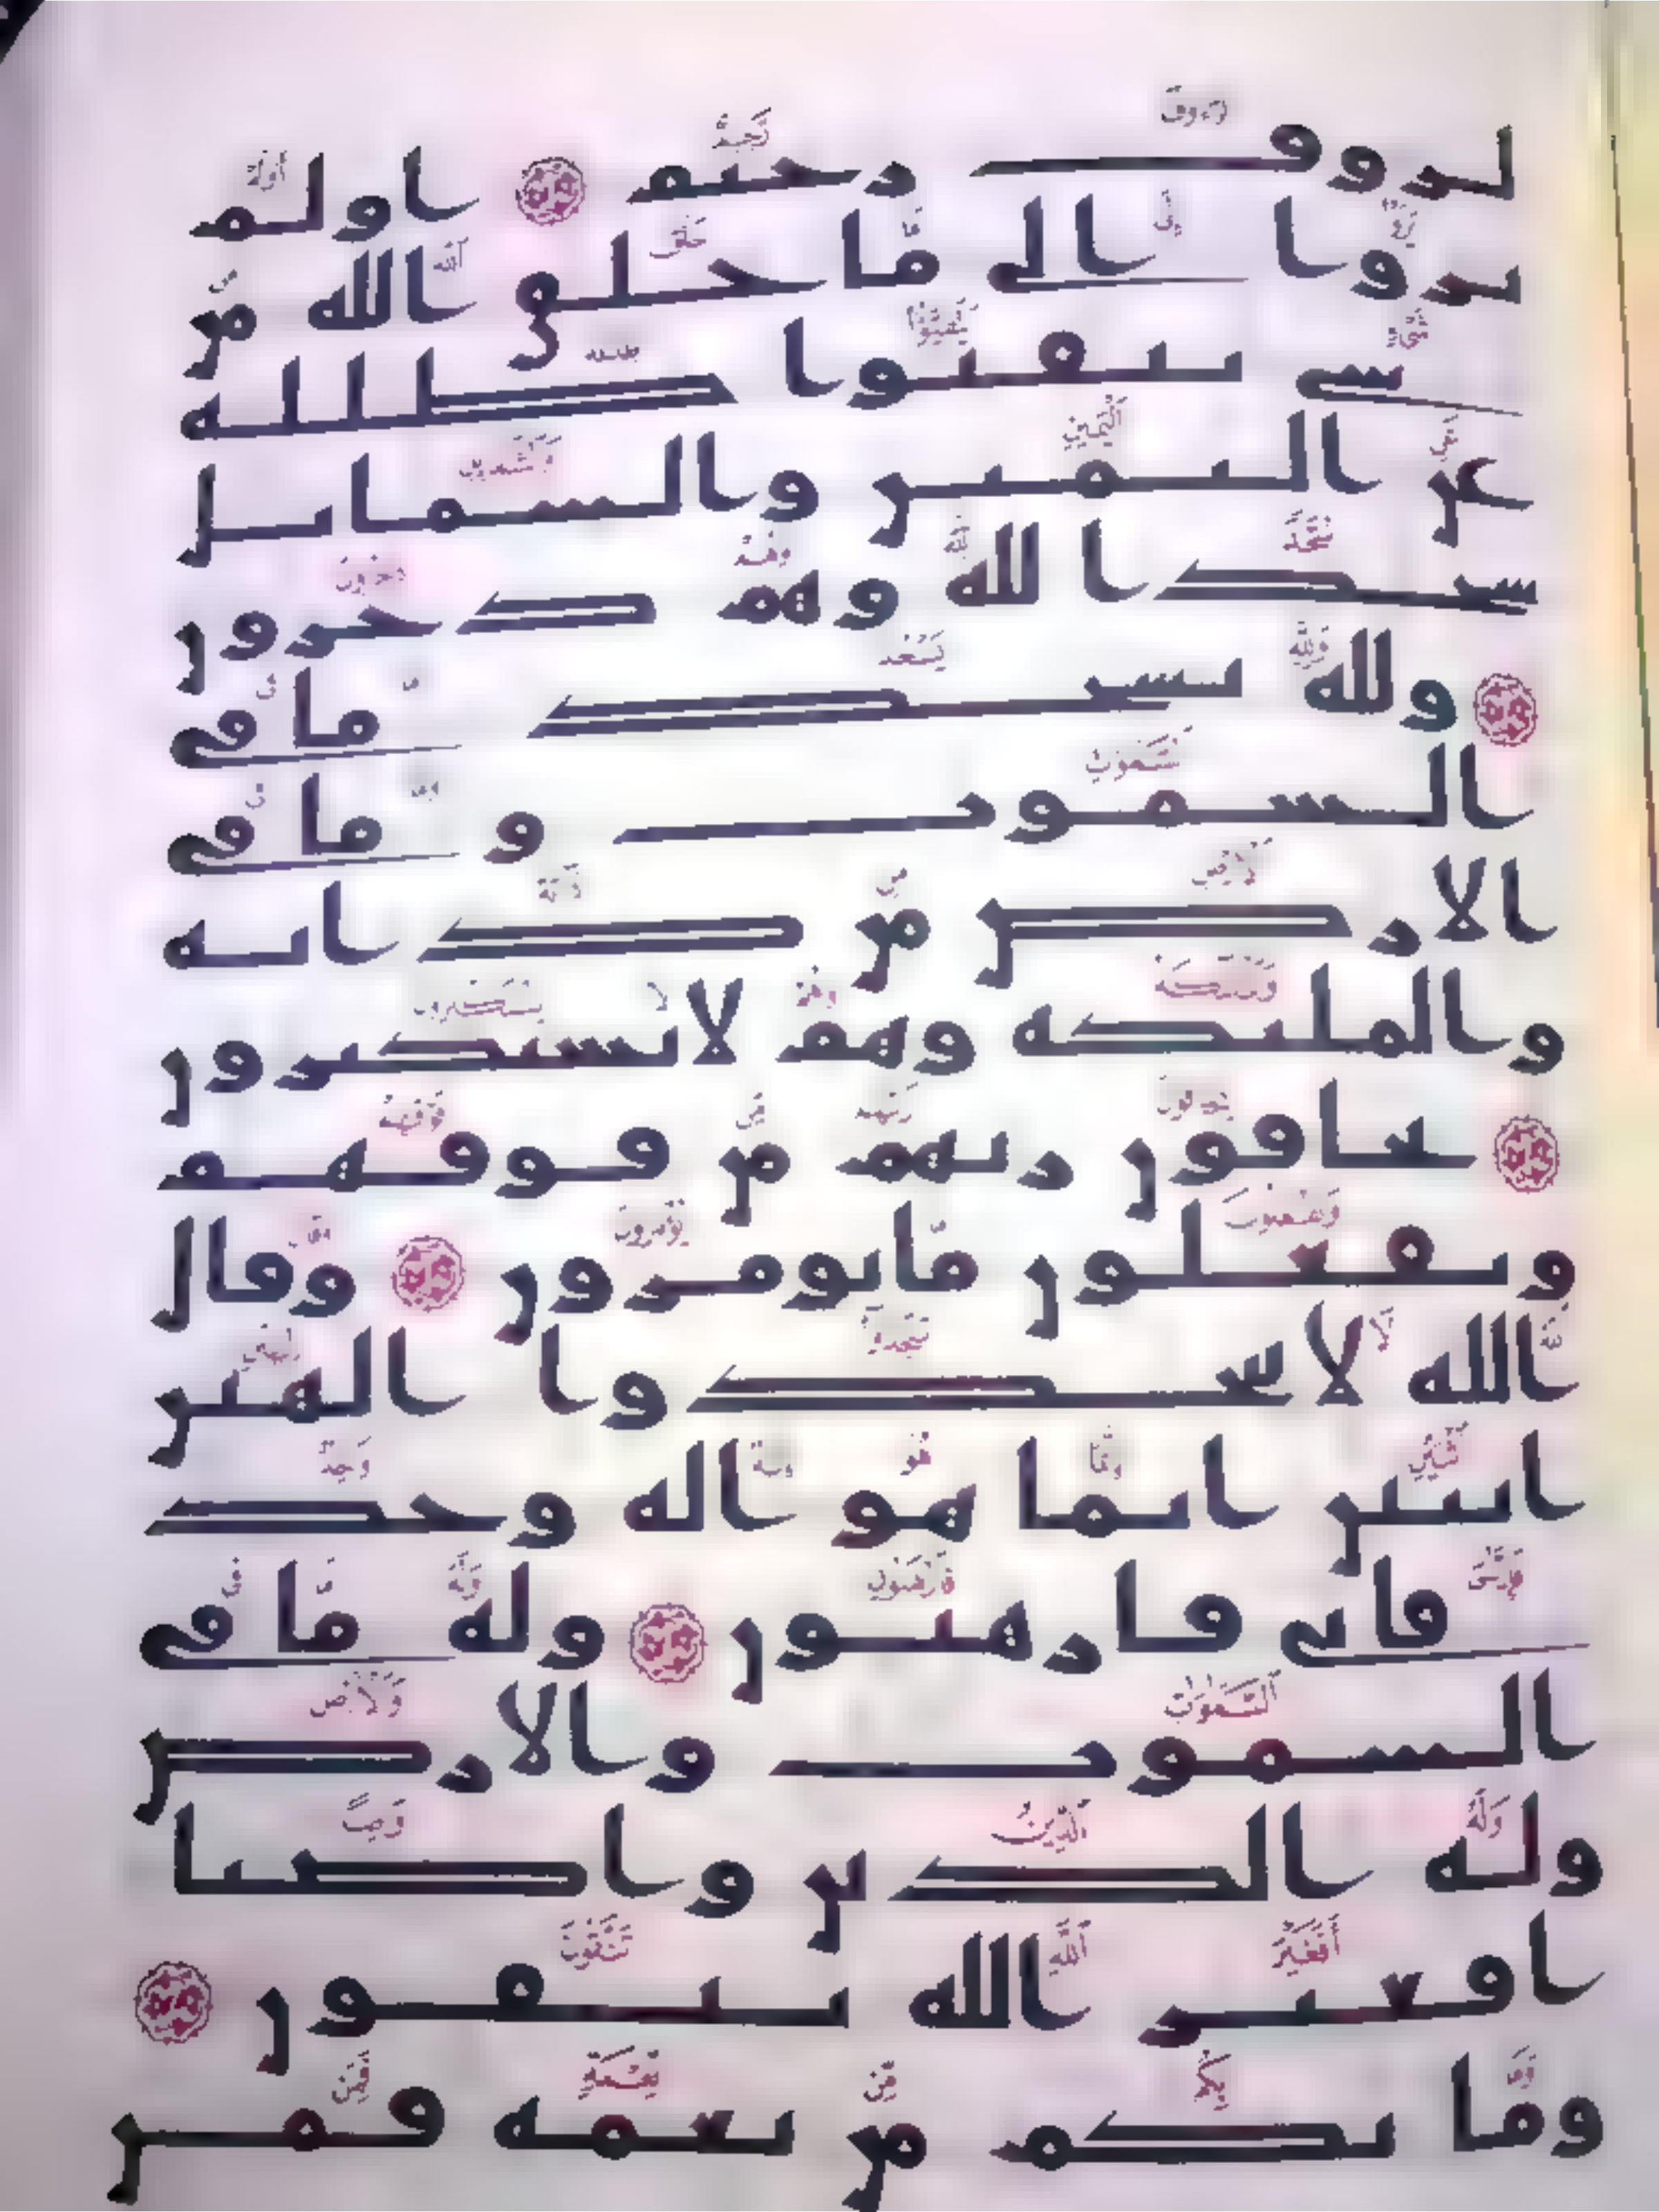 لروف رحيم اولم
يروا الى ما خلق الله من
شي يتفيوا ظلله
عن اليمين والشمايل
سجدا لله وهم دخرون
ولله يسجد ما في
السموت وما في
الارض من دابه
والمليكه وهم لا يستكبرون
يخافون ربهم من فوقهم
ويفعلون ما يومرون وقال
الله لا تتخذوا الهين
اثنين انما هو اله وحد
فايى فارهبون وله ما في
السموت والارض
وله الدين واصبا
افغير الله تتقون
وما بكم من نعمه فمن